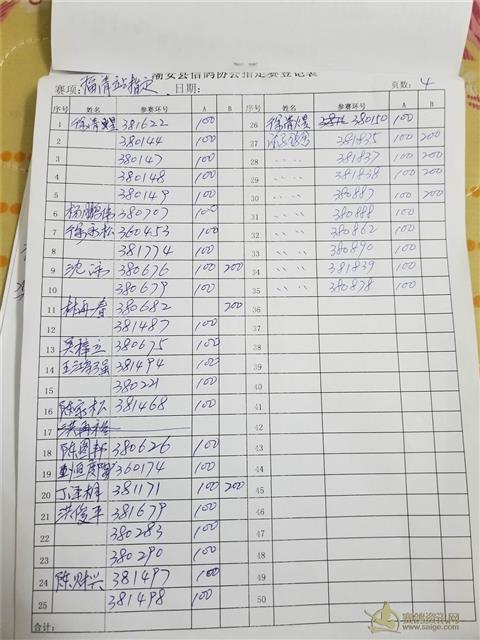 潮安县信鸽协会指定赛登记表
赛项: 福清站指定 日期: 页数: 4
序号 姓名 参赛环号 A B 序号 姓名 参赛环号 A B
1 徐清煌 381622 100 26 徐清煌 380150 100
2 380144 100 27 381835 100 200
3 380147 100 28 〃 〃 381837 100 200
4 380148 100 29 〃 〃 381838 100 200
5 380149 100 30 〃 〃 380887 100 200
6 杨鹏伟 380707 100 31 〃 〃 380888 100
7 徐永松 360453 100 32 〃 〃 380862 100
8 381774 100 33 〃 〃 380890 100
9 沈沛 380676 100 200 34 〃 〃 381839 100
10 380679 100 35 〃 〃 380878 100
11 林再春 380682 200 36
12 381487 100 37
13 吴梓立 380675 100 38
14 381494 100 39
15 380221 100 40
16 陈家松 381468 100 41
17 42
18 陈图邦 380626 100 43
19 360174 100 44
20 381171 100 200 45
21 洪俊平 381679 100 46
22 380283 100 47
23 380290 100 48
24 陈财兴 381497 100 49
25 381498 100 50
合计:
赛鸽资讯网
www.saige.com